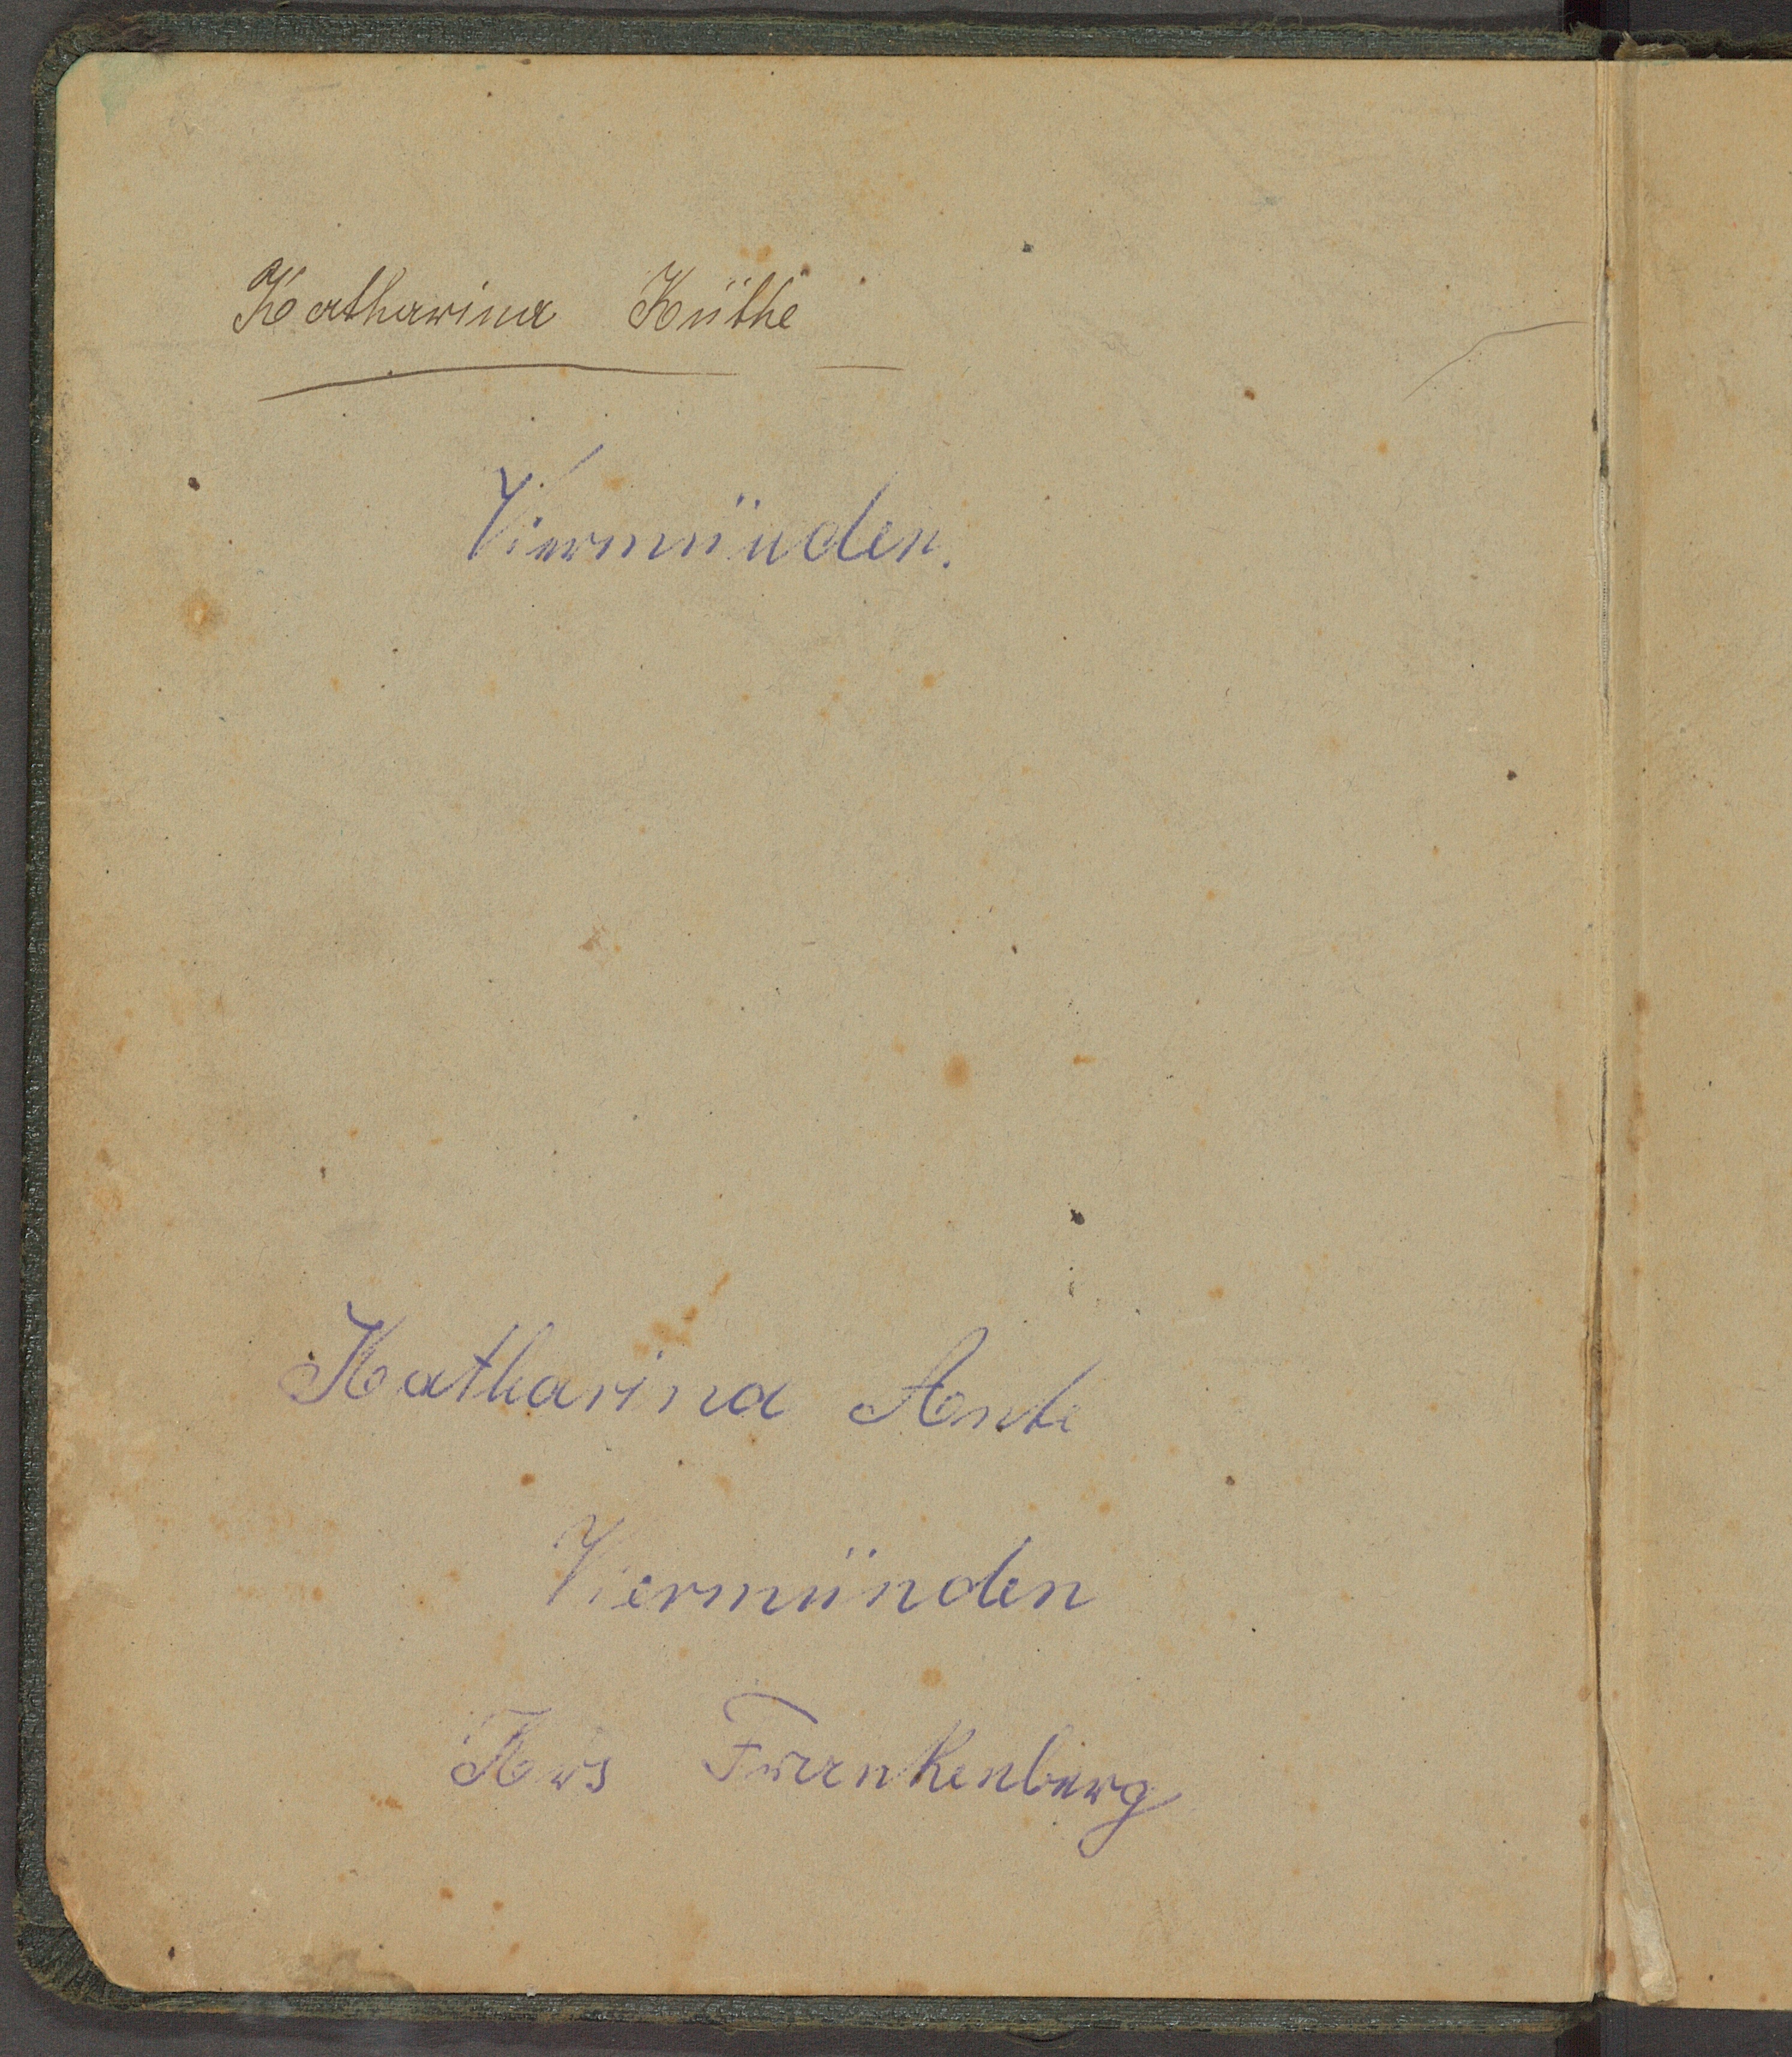 Katharina Küthe
Viermünden.
Katharina Ante
Viermünden
Krs Frankenberg